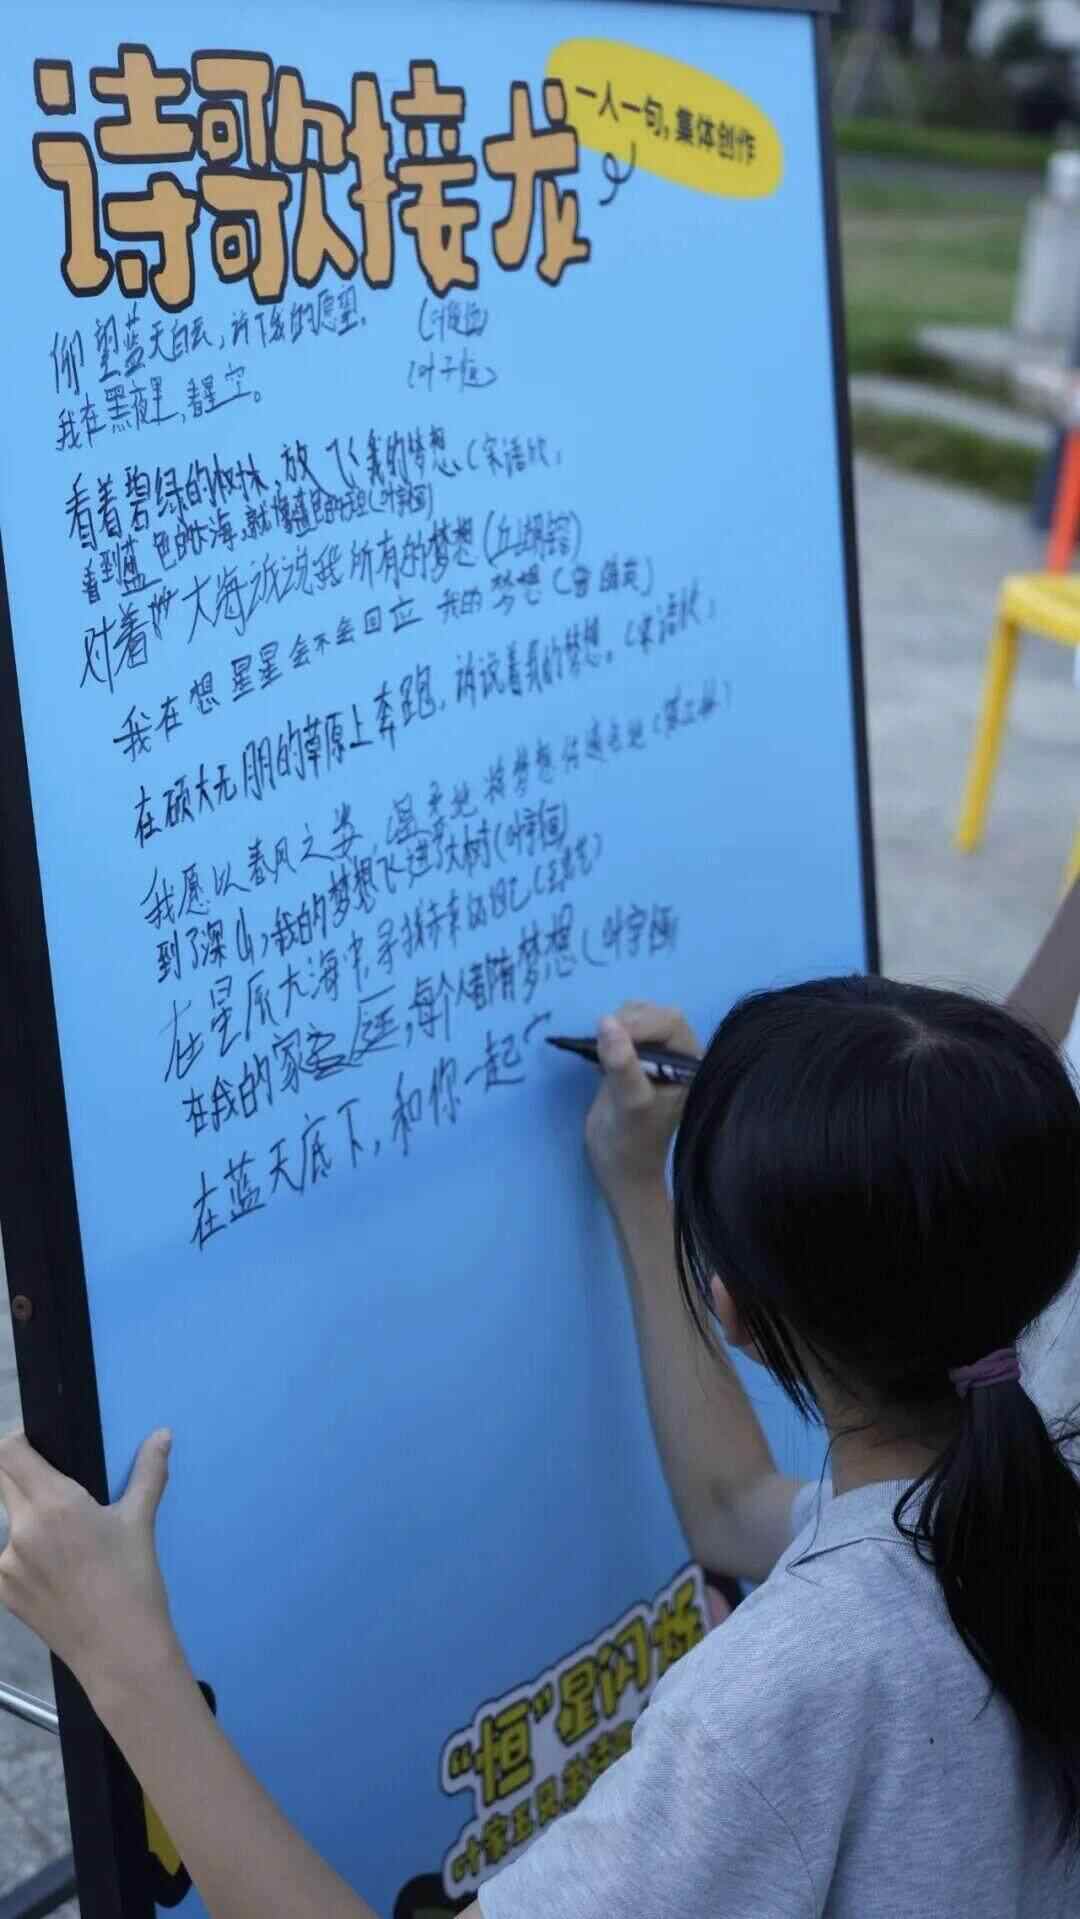 诗歌接龙
一人一句，集体创作
仰望蓝天白云，许下我的愿望。
我在黑夜里，看星空。
看着碧绿的树林，放飞我的梦想。（宋语欣）
看到蓝色的大海，就像蓝色的
对着大海诉说我所有的梦想（丘
我在想星星会不会回应我的梦想（曾
在硕大无朋的草原上奔跑，诉说着我的梦想。（宋语欣）
我愿以春风之姿，温柔地将梦想传遍各地
到了深山，我的梦想飞进了大树（叶宇
在星辰大海中寻找
在我的家，每个人都有梦想（叶宇
在蓝天底下，和你一起
“恒”星闪烁
叶家